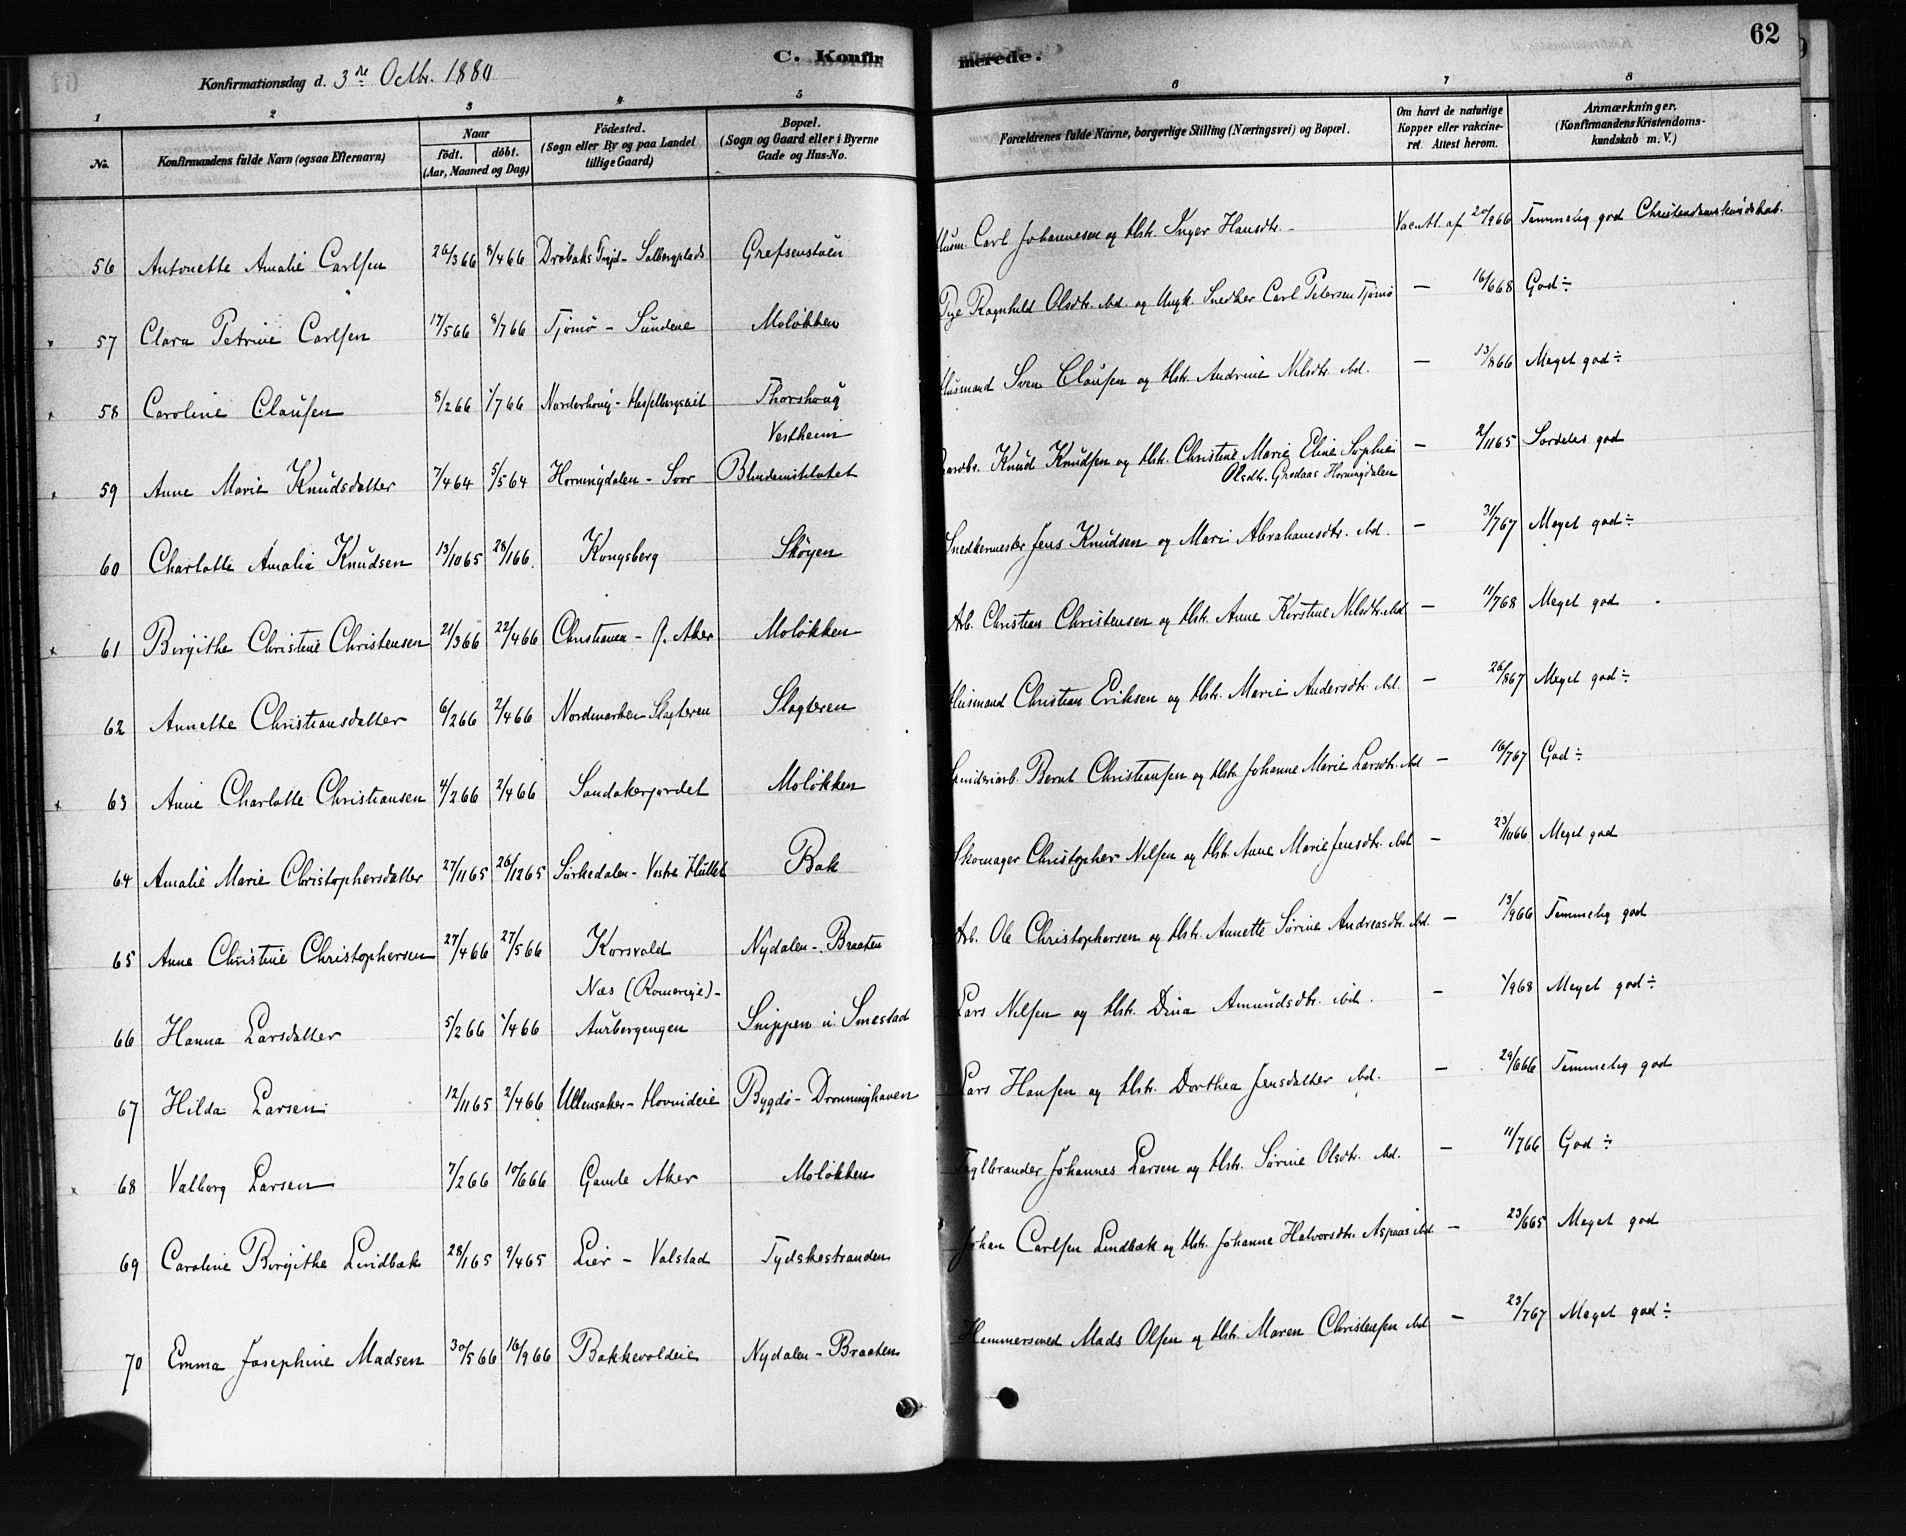 62
C. Konfirmerede.
Konfirmationsdag d. 3die Octbr. 1880
1 2 3 4 5 6 7 8
No. Konfirmandens fulde Navn (ogsaa Efternavn) Naar født. døbt. (Aar, Maaned og Dag) Fødested. (Sogn eller By og paa Landet tillige Gaard) Bopæl. (Sogn og Gaard eller i Byerne Gade og Hus-No. Forældrenes fulde Navne, borgerlige Stilling (Næringsvei) og Bopæl. Om havt de naturlige Kopper eller vakcineret. Attest herom. Anmærkninger. (Konfirmandens Kristendomskundskab m. V.)
56 Antonette Amalie Carlsen 26/3 66 8/4 66 Drøbaks Solbergplads Grefsenstuen Husm. Carl Johannesen og Hstr. Inger Hansdtr. Vac. Att. af 20/9 66 Temmelig god Christendomskundskab.
57 Clara Petrine Carlsen 17/5 66 8/7 66 Tjømø - Sundene Moløkken Pige Ragnhild Olsdtr. ibd. og Ungk. Snedker Carl Petersen Tjømø — 16/6 68 God ÷
58 Caroline Clausen 8/2 66 1/7 66 Norderhoug - Hesselbergseiet Thorshoug Husmand Sven Clausen og Hstr. Andrine Nilsdtr. ibd. — 13/8 66 Meget god ÷
59 Anne Marie Knudsdatter 7/4 64 5/5 64 Horningdalen - Soor Vestheim Blindeinstitutet Gaardbr. Knud Knudsen og Hstr. Christine Marie Eline Sophie Olsdtr. Grodaas Horningdalen — 2/11 65 Særdeles god
60 Charlotte Amalie Knudsen 13/10 65 28/1 66 Kongsberg Skøyen Snedkermester Jens Knudsen og Mari Abrahamsdtr. ibd. — 31/7 67 Meget god ÷
61 Birgithe Christine Christensen 21/3 66 22/4 66 Christiania - G. Aker Moløkken Arb. Christian Christensen og Hstr. Anne Kirstine Nilsdtr. ibd. — 11/7 68 Meget god
62 Annette Christiansdatter 6/2 66 2/4 66 Nordmarken Slagteren Slagteren Husmand Christian Eriksen og Hstr. Marie Andersdtr. ibd. — 26/8 67 Meget god ÷
63 Anne Charlotte Christiansen 4/2 66 2/4 66 Sandakerjordet Moløkken Bernt Christiansen og Hstr. Johanne Marie Larsdtr. ibd — 16/7 67 God ÷
64 Amalie Marie Christophersdatter 27/11 65 26/12 65 Sørkedalen - Vestre Hullet Bak Skomager Christopher Nilsen og Hstr. Anne Marie Jensdtr. ibd — 23/10 66 Meget god
65 Anne Christine Christophersen 27/4 66 27/5 66 Korsvold Nydalen - Braaten Arb. Ole Christophersen og Hstr. Annette Sørine Andreasdtr. ibd. — 13/9 66 Temmelig god
66 Hanna Larsdatter 5/2 66 1/4 66 Næs (Romerige) - Aurbergengen Snippen u. Smestad Lars Nilsen og Hstr. Dina Amundsdtr. ibd. — 1/9 68 Meget god ÷
67 Hilda Larsen 12/11 65 2/4 66 Ullensaker - Hovnideie Bygdø - Dronninghaven Lars Hansen og Hstr. Dorthea Jensdatter ibd. — 29/6 66 Temmelig god
68 Valborg Larsen 7/2 66 10/6 66 Gamle Aker Moløkken Teglbrænder Johannes Larsen og Hstr. Sørine Olsdtr. ibd. — 11/7 66 God ÷
69 Caroline Birgithe Lindbæk 28/1 65 9/4 65 Lier - Valstad Tydskestranden Johan Carlsen Lindbæk og Hstr. Johanne Halvorsdtr. Aspaas ibd — 23/6 65 Meget god
70 Emma Josephine Madsen 30/5 66 16/9 66 Bakkevoldeie Nydalen - Braaten Hammersmed Mads Olsen og Hstr. Maren Christensen ibd — 23/7 67 Meget god ÷